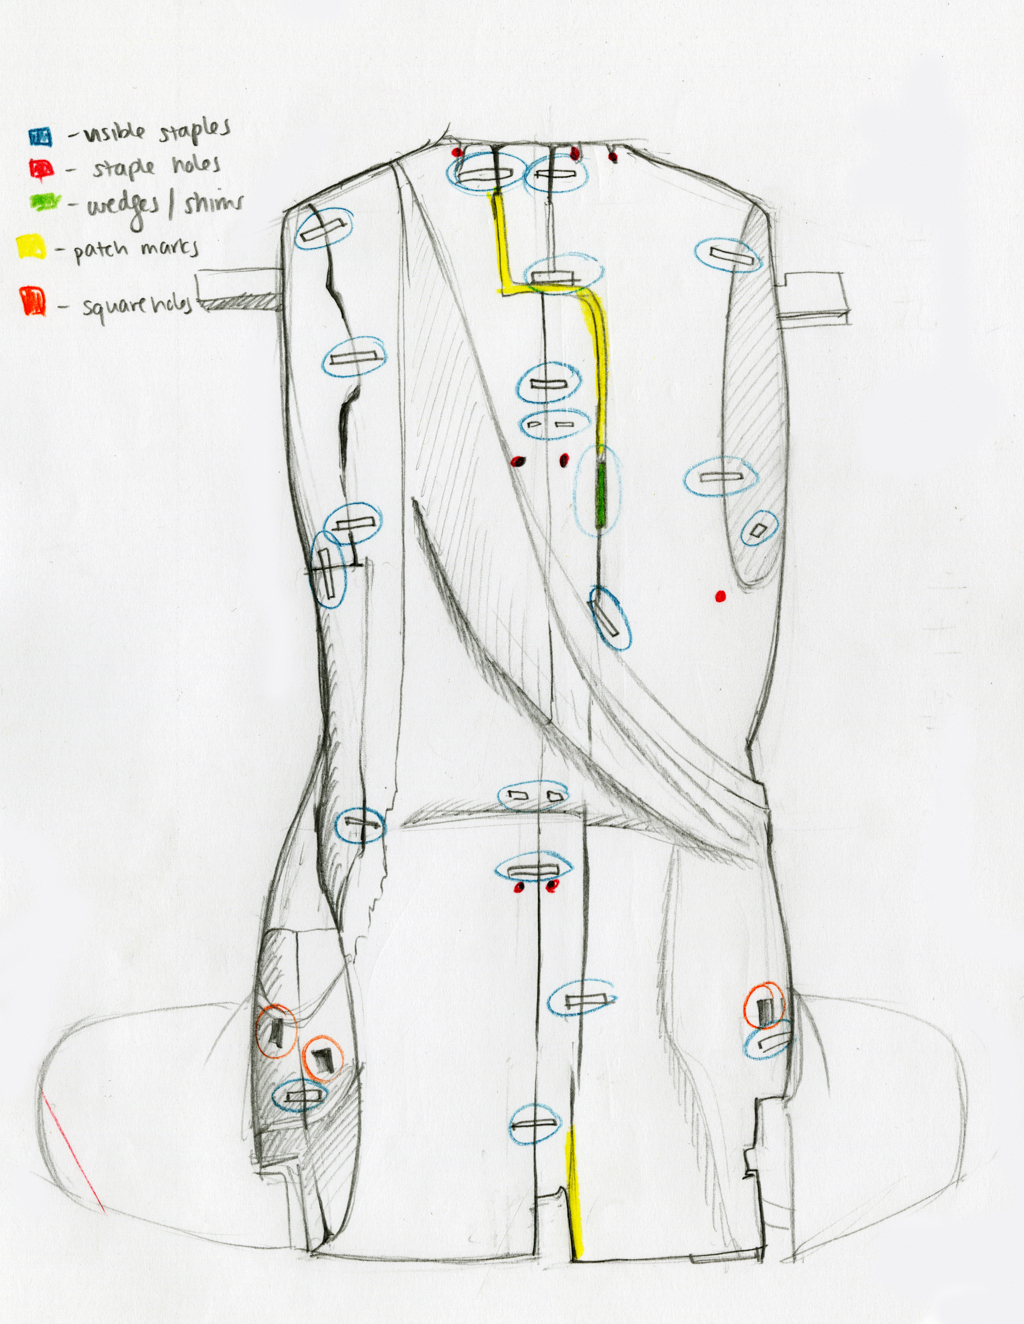 - visible staples
- staple holes
- wedges / shims
- patch marks
- square holes